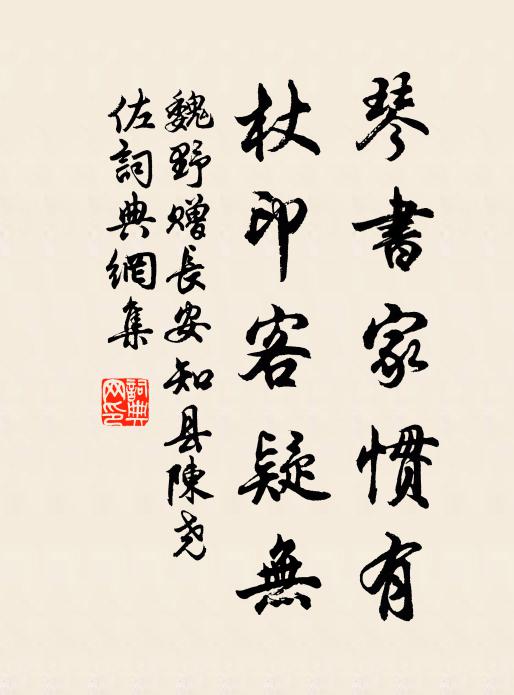 琴書家慣有
杖印客疑無
魏野贈長安知县陳尧
佐詞典網集
詞典網印